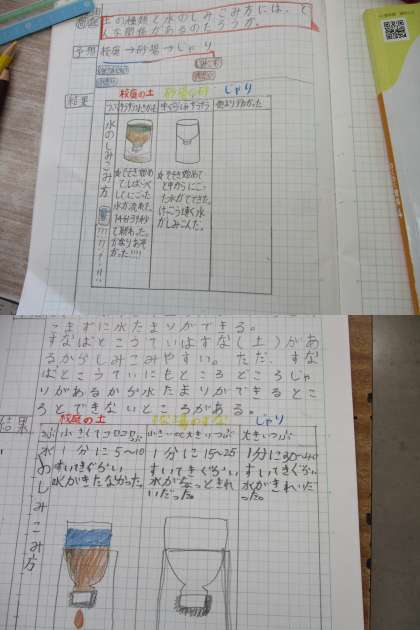 問題 土の種類と水のしみこみ方には、ど
んな関係があるのだろうか。
予想 校庭→砂場→じゃり
結果
校庭の土
砂場の砂
じゃり
水のしみこみ方
☆そそぎ始め
てしばらく
してにごった
水が流れた。
14分39秒
で終わった。
かなりおそ
かった!!!!
☆そそぎ始めて
とちゅうからにごっ
た水がでてきた。
けっこう速く水
がしみこんだ。
こまずに水たまりができる。
すなばとこうていはすな(土)があ
るからしみこみやすい。ただ、すな
ばとこうていにもところどころじゃ
りがあるから水たまりができるとこ
ろとできないところがある。
結果
校庭の土
すな場のすな
じゃり
つぶ
小さくてコロコロ
大きいつぶ
水のしみこみ方
1分に5〜10
すいてきぐらい
水がきたなかった。
1分に15〜25
すいてきぐらい
水がちょっときれ
いだった。
1分に30〜
すいてきぐらい
水がきれいだっ
た。